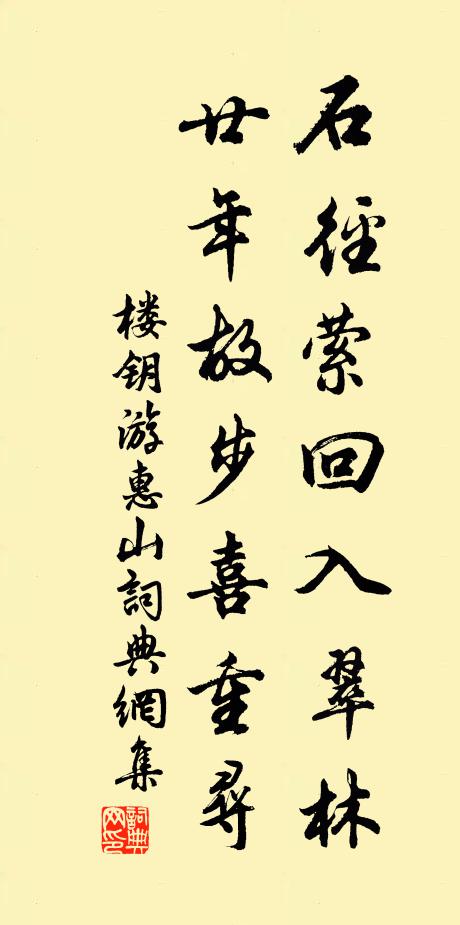 石徑縈回入翠林
廿年故步喜重尋
楼钥游惠山詞典網集
詞典网印